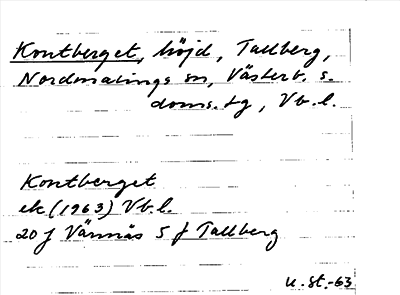 Kontberget, höjd, Tallberg,
Nordmalings sn, Västerb. s.
doms. tg, Vb. l.
Kontberget
ek (1963) Vb. l.
20 J Vännäs 5 f Tallberg
u. st. -63